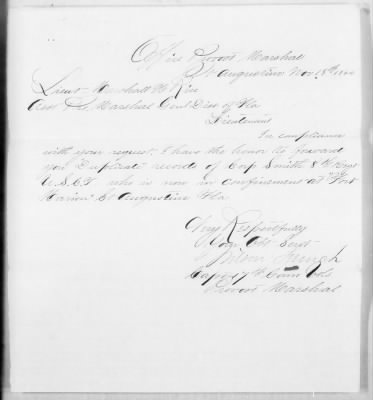 Office Provost Marshal
St Augustine Nov 18th 1864
Lieut Marshall H Rice
Asst Pro Marshal Genl Dist of Fla
Lieutenant
In compliance
with your request, I have the honor to forward
you Duplicate records of Corp Smith 8th Regt
U.S.C.T who is now in confinement at Fort
Marion St Augustine Fla
Very Respectfully
Your Obt Servt
Wilson
Capt 17th Conn Vols
Provost Marshal